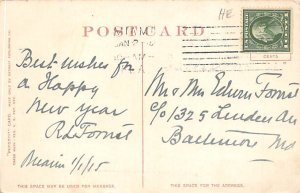 HE
POST CARD
CENTS
Best wishes for
a Happy
New Year
R L Forrist
Miami 1/1/15
Mr & Mrs Edwin Forrist
C/o 1325 Linden Av
Baltimore Md
THIS SPACE MAY BE USED FOR MESSAGE.
THIS SPACE FOR THE ADDRESS.